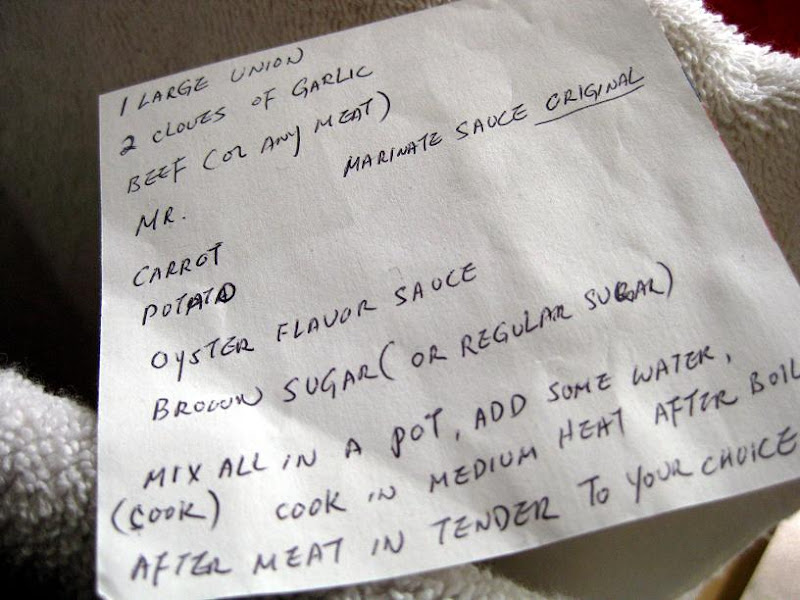 1 LARGE UNION
2 CLOVES OF GARLIC
BEEF (OR ANY MEAT)
MR. MARINATE SAUCE ORIGINAL
CARROT
POTATO
OYSTER FLAVOR SAUCE
BROWN SUGAR (OR REGULAR SUGAR)
MIX ALL IN A POT, ADD SOME WATER,
(COOK) COOK IN MEDIUM HEAT AFTER BOIL
AFTER MEAT IN TENDER TO YOUR CHOICE